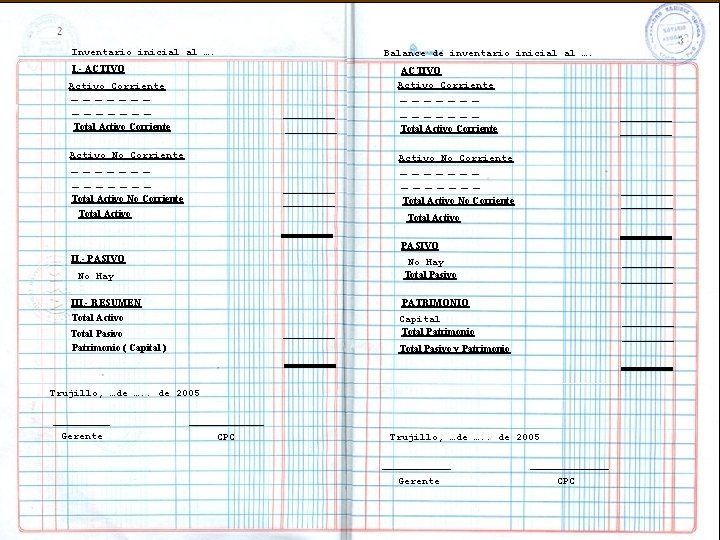 2
Inventario inicial al ….
I.- ACTIVO
Activo Corriente
Total Activo Corriente
Activo No Corriente
Total Activo No Corriente
Total Activo
II.- PASIVO
No Hay
III.- RESUMEN
Total Activo
Total Pasivo
Patrimonio ( Capital )
Trujillo, …de ….. de 2005
Gerente CPC
3
Balance de inventario inicial al ….
ACTIVO
Activo Corriente
Total Activo Corriente
Activo No Corriente
Total Activo No Corriente
Total Activo
PASIVO
No Hay
Total Pasivo
PATRIMONIO
Capital
Total Patrimonio
Total Pasivo y Patrimonio
Trujillo, …de ….. de 2005
Gerente CPC